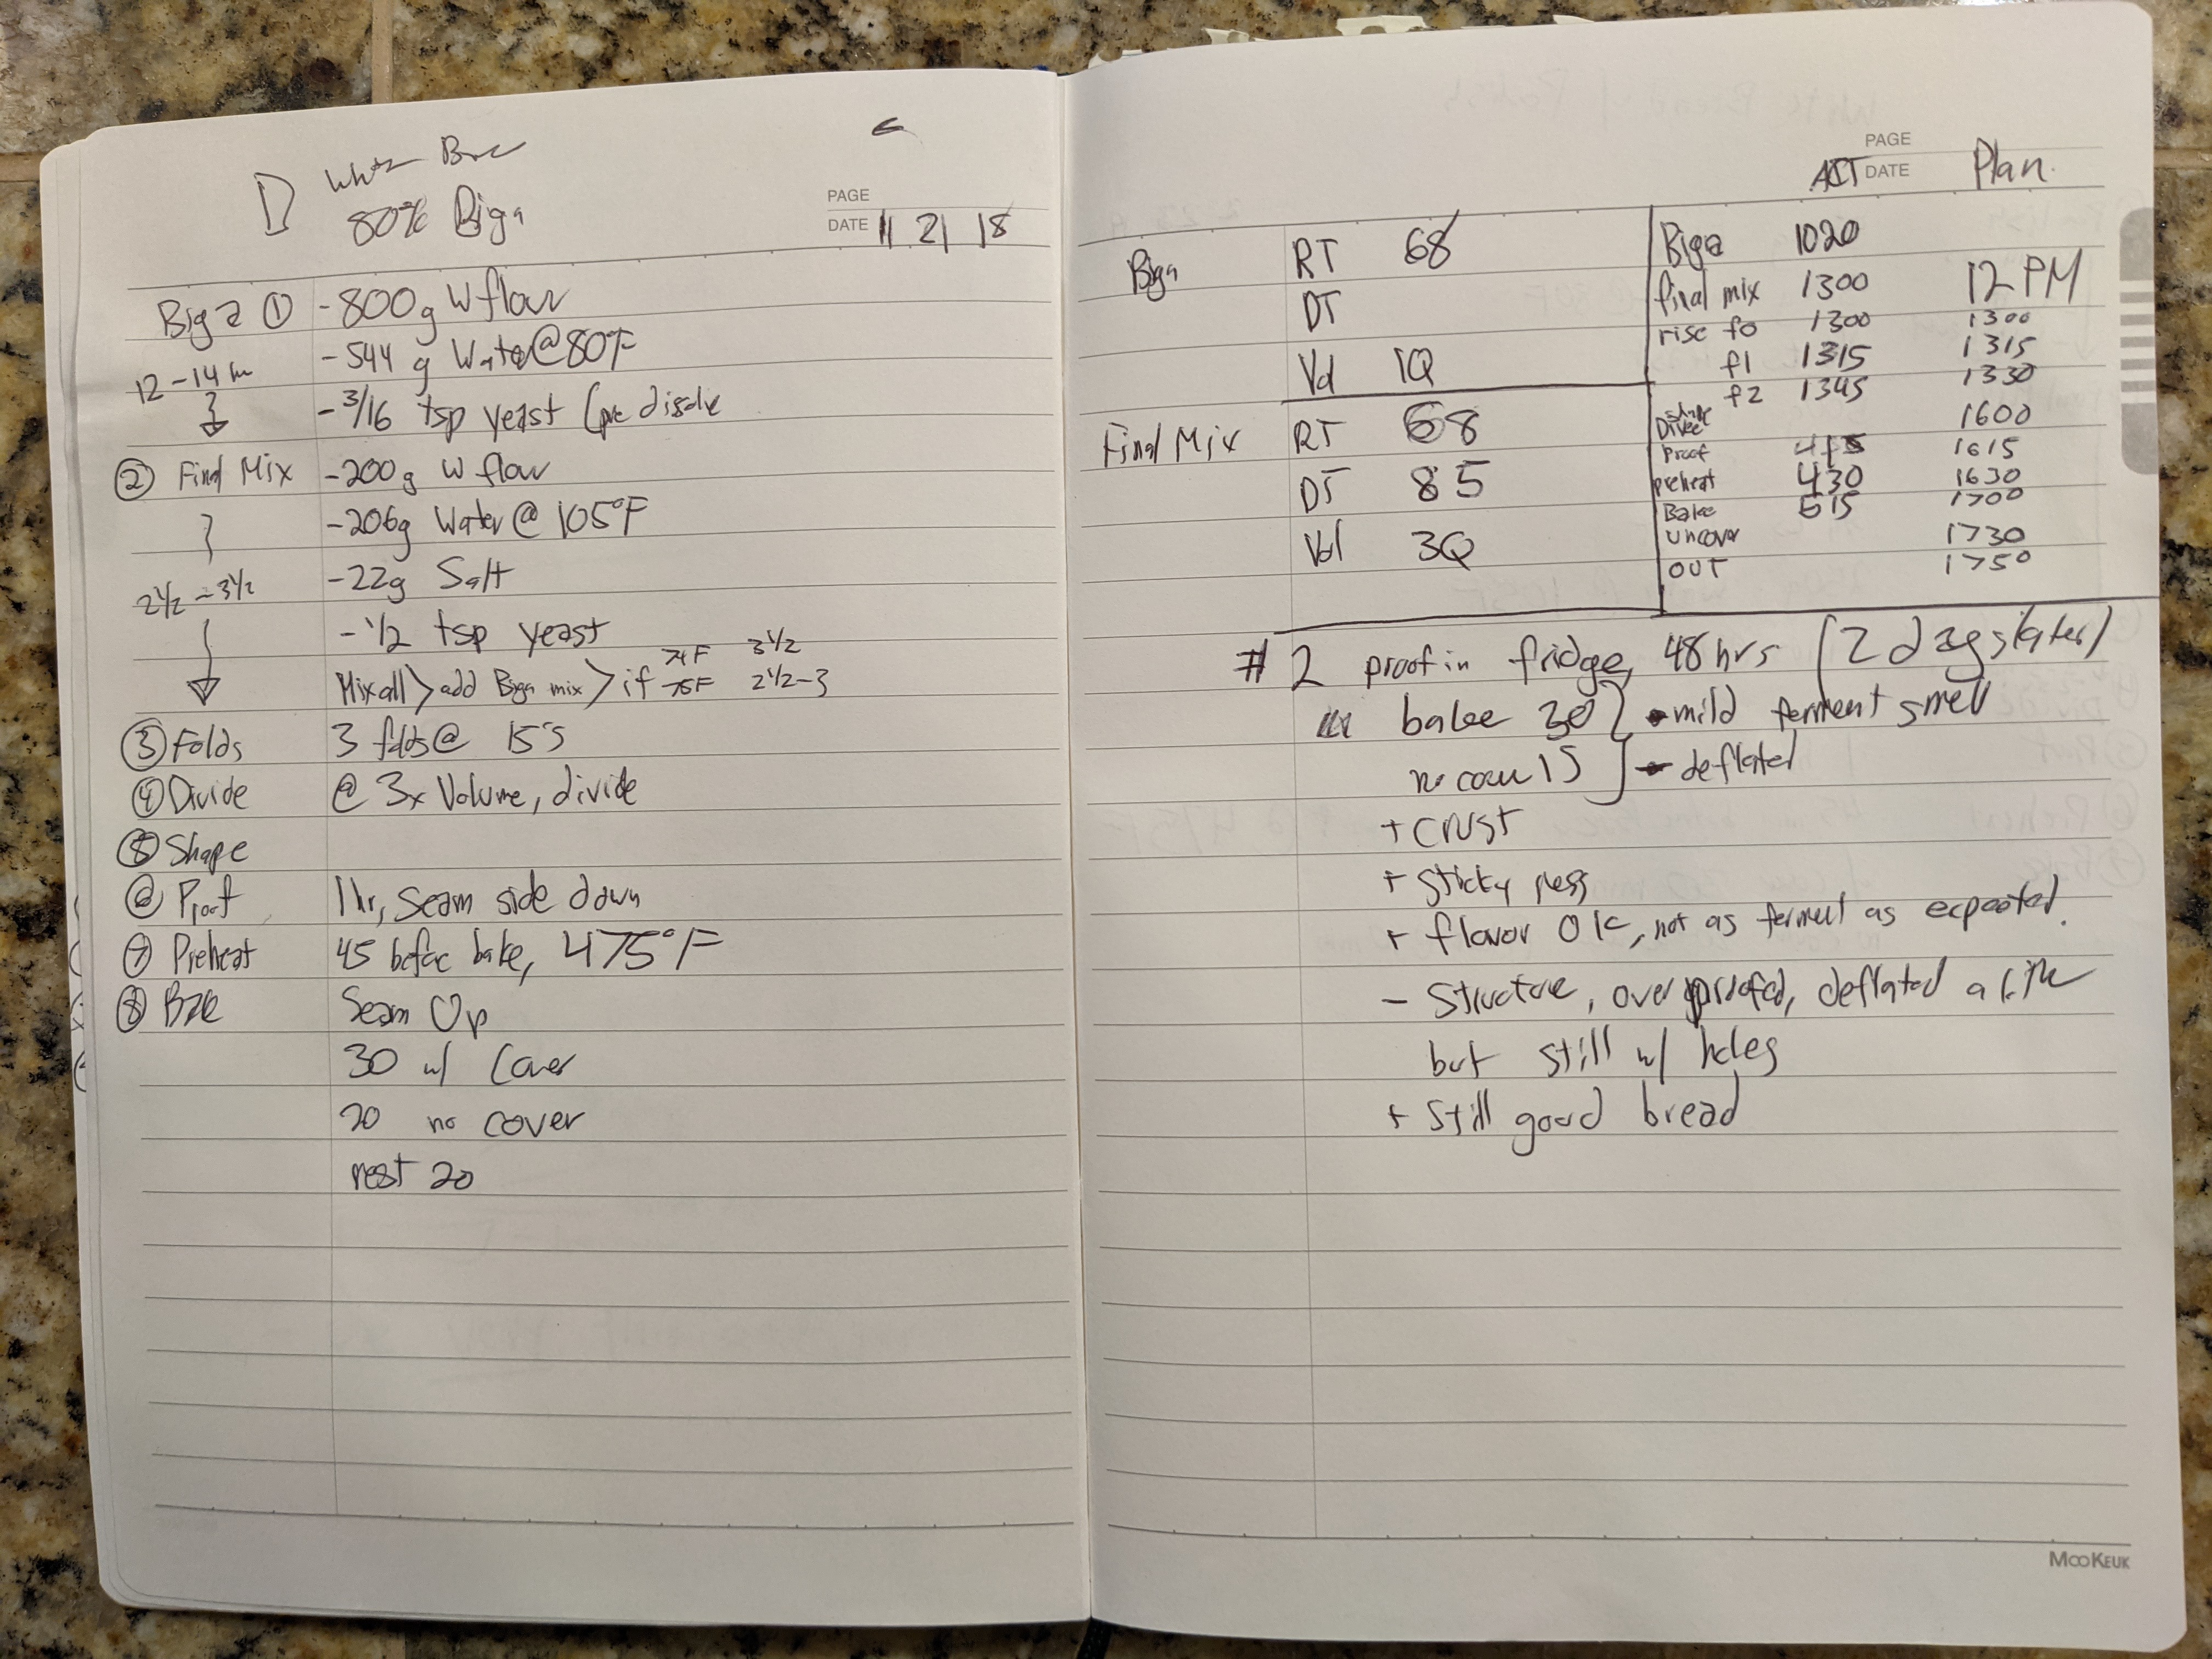 80% Biga
PAGE
DATE 11 21 18
Biga ① -800g W flour
-544 g Water @ 80°F
12-14 hr
-3/16 tsp yeast (pre disolve
② Final Mix -200g W flour
-206g Water @ 105°F
-22g Salt
2½-3½
-½ tsp yeast
Mix all > add Biga mix > if 70F 3½
75F 2½-3
③ Folds 3 folds @ 15's
④ Divide @ 3x Volume, divide
⑤ Shape
⑥ Proof 1 hr, Seam side down
⑦ Preheat 45 before bake, 475°F
⑧ Bake Seam Up
30 w/ Cover
20 no cover
rest 20
PAGE
DATE
ACT Plan.
Biga RT 68
DT
Vol 1Q
Final Mix RT 68
DT 85
Vol 3Q
Biga 1020
final mix 1300 12 PM
rise f0 1300 1300
f1 1315 1315
f2 1345 1330
shape
Divide 1600
Proof 415 1615
preheat 430 1630
Bake 515 1700
uncover 1730
OUT 1750
#2 proof in fridge, 48 hrs (2 days later)
bake 30 - mild ferment smell
no cover 15 - deflated
+ crust
+ sticky ness
+ flavor OK, not as ferment as expected.
- Structure, over proofed, deflated a little
but still w/ holes
+ Still good bread
MOOKEUK